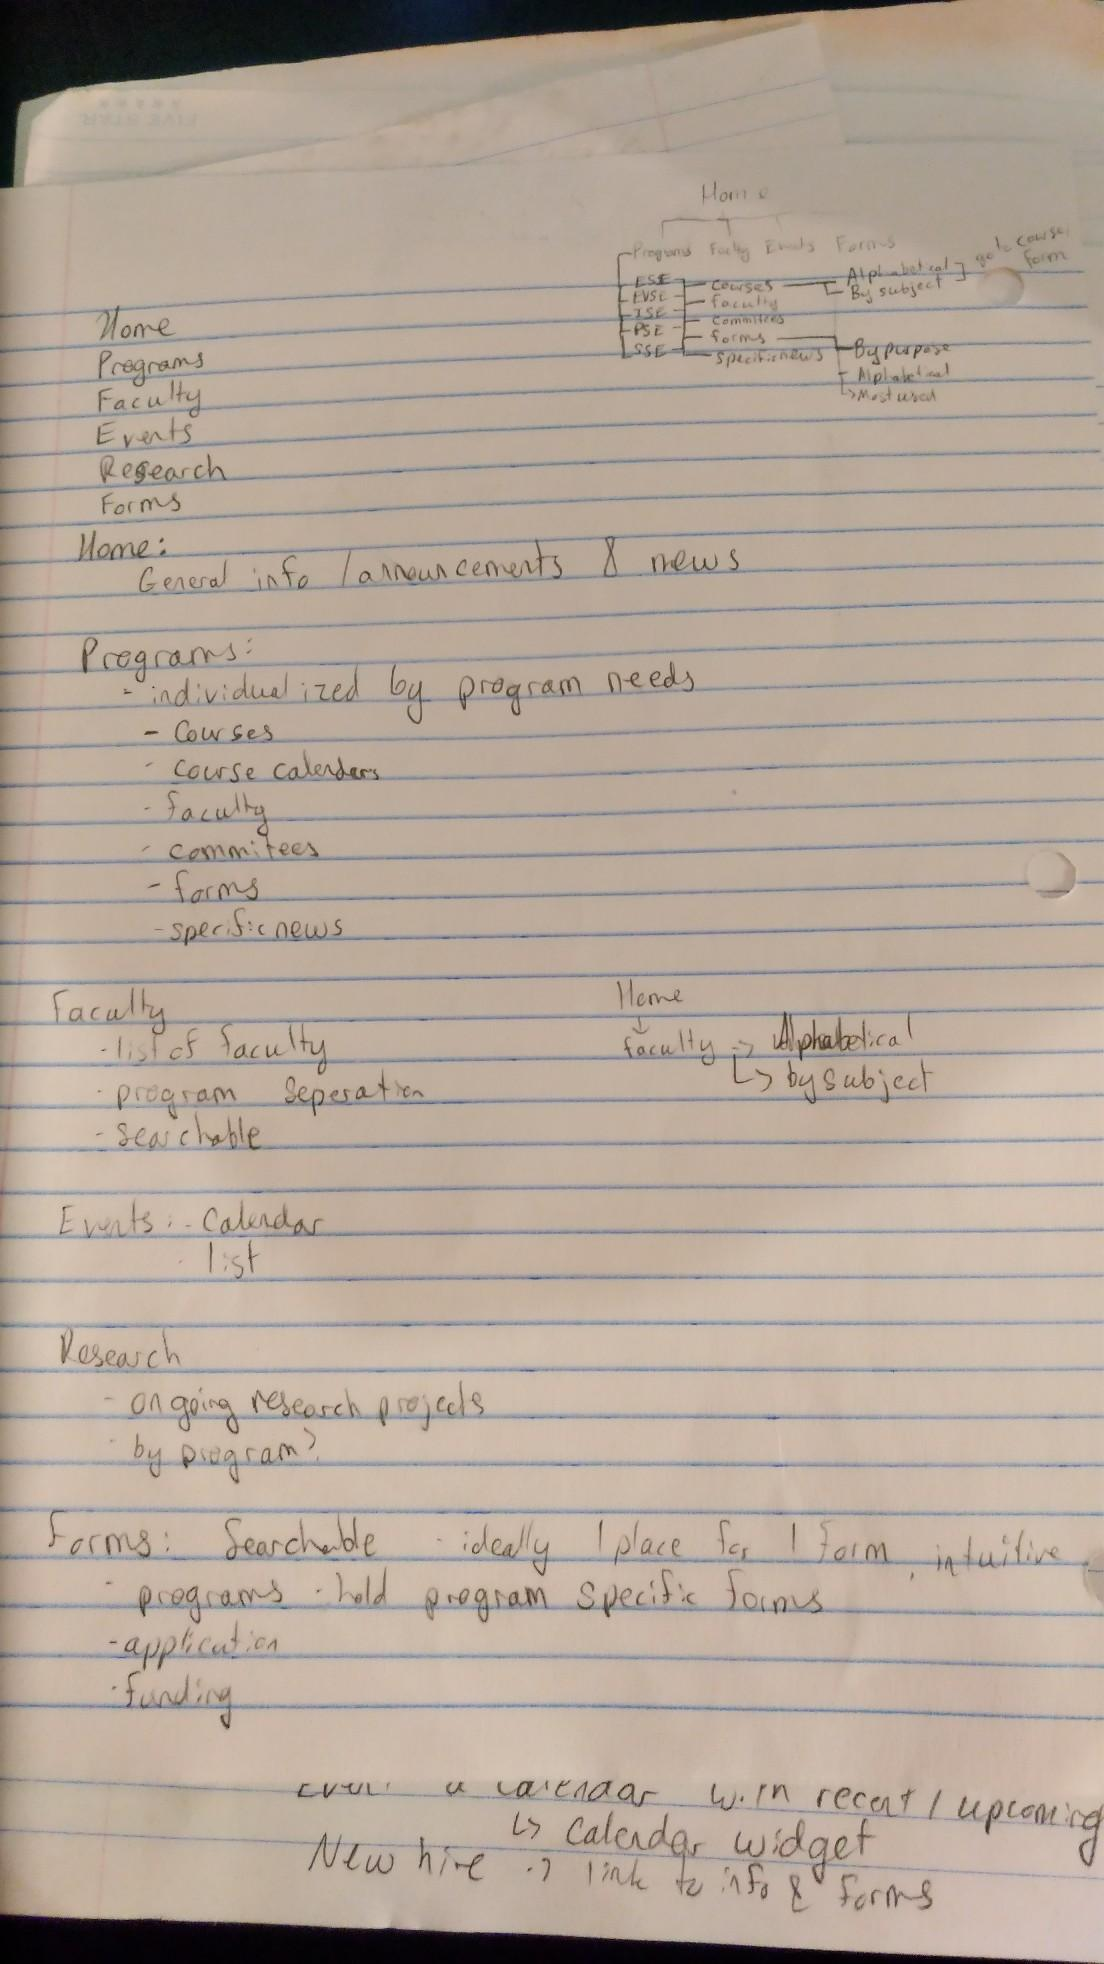 Home
Programs Faculty Events Forms
ESE
EVSE
ISE
PSE
SSE
courses
faculty
committees
forms
specific news
Alphabetical
By subject
go to course
form
By purpose
Alphabetical
Most used
Home
Programs
Faculty
Events
Research
Forms
Home:
General info / announcements & news
Programs:
- individualized by program needs
- Courses
- course calenders
- faculty
- commitees
- forms
- specific news
Faculty
- list of faculty
- program seperation
- searchable
Home
↓
faculty -> Alphabetical
↳ by subject
Events: - Calendar
- list
Research
- ongoing research projects
- by program?
Forms: Searchable - ideally 1 place for 1 form, intuitive
- programs - hold program specific forms
- application
- funding
a calendar with recent / upcoming
↳ Calendar widget
New hire -> link to info & forms